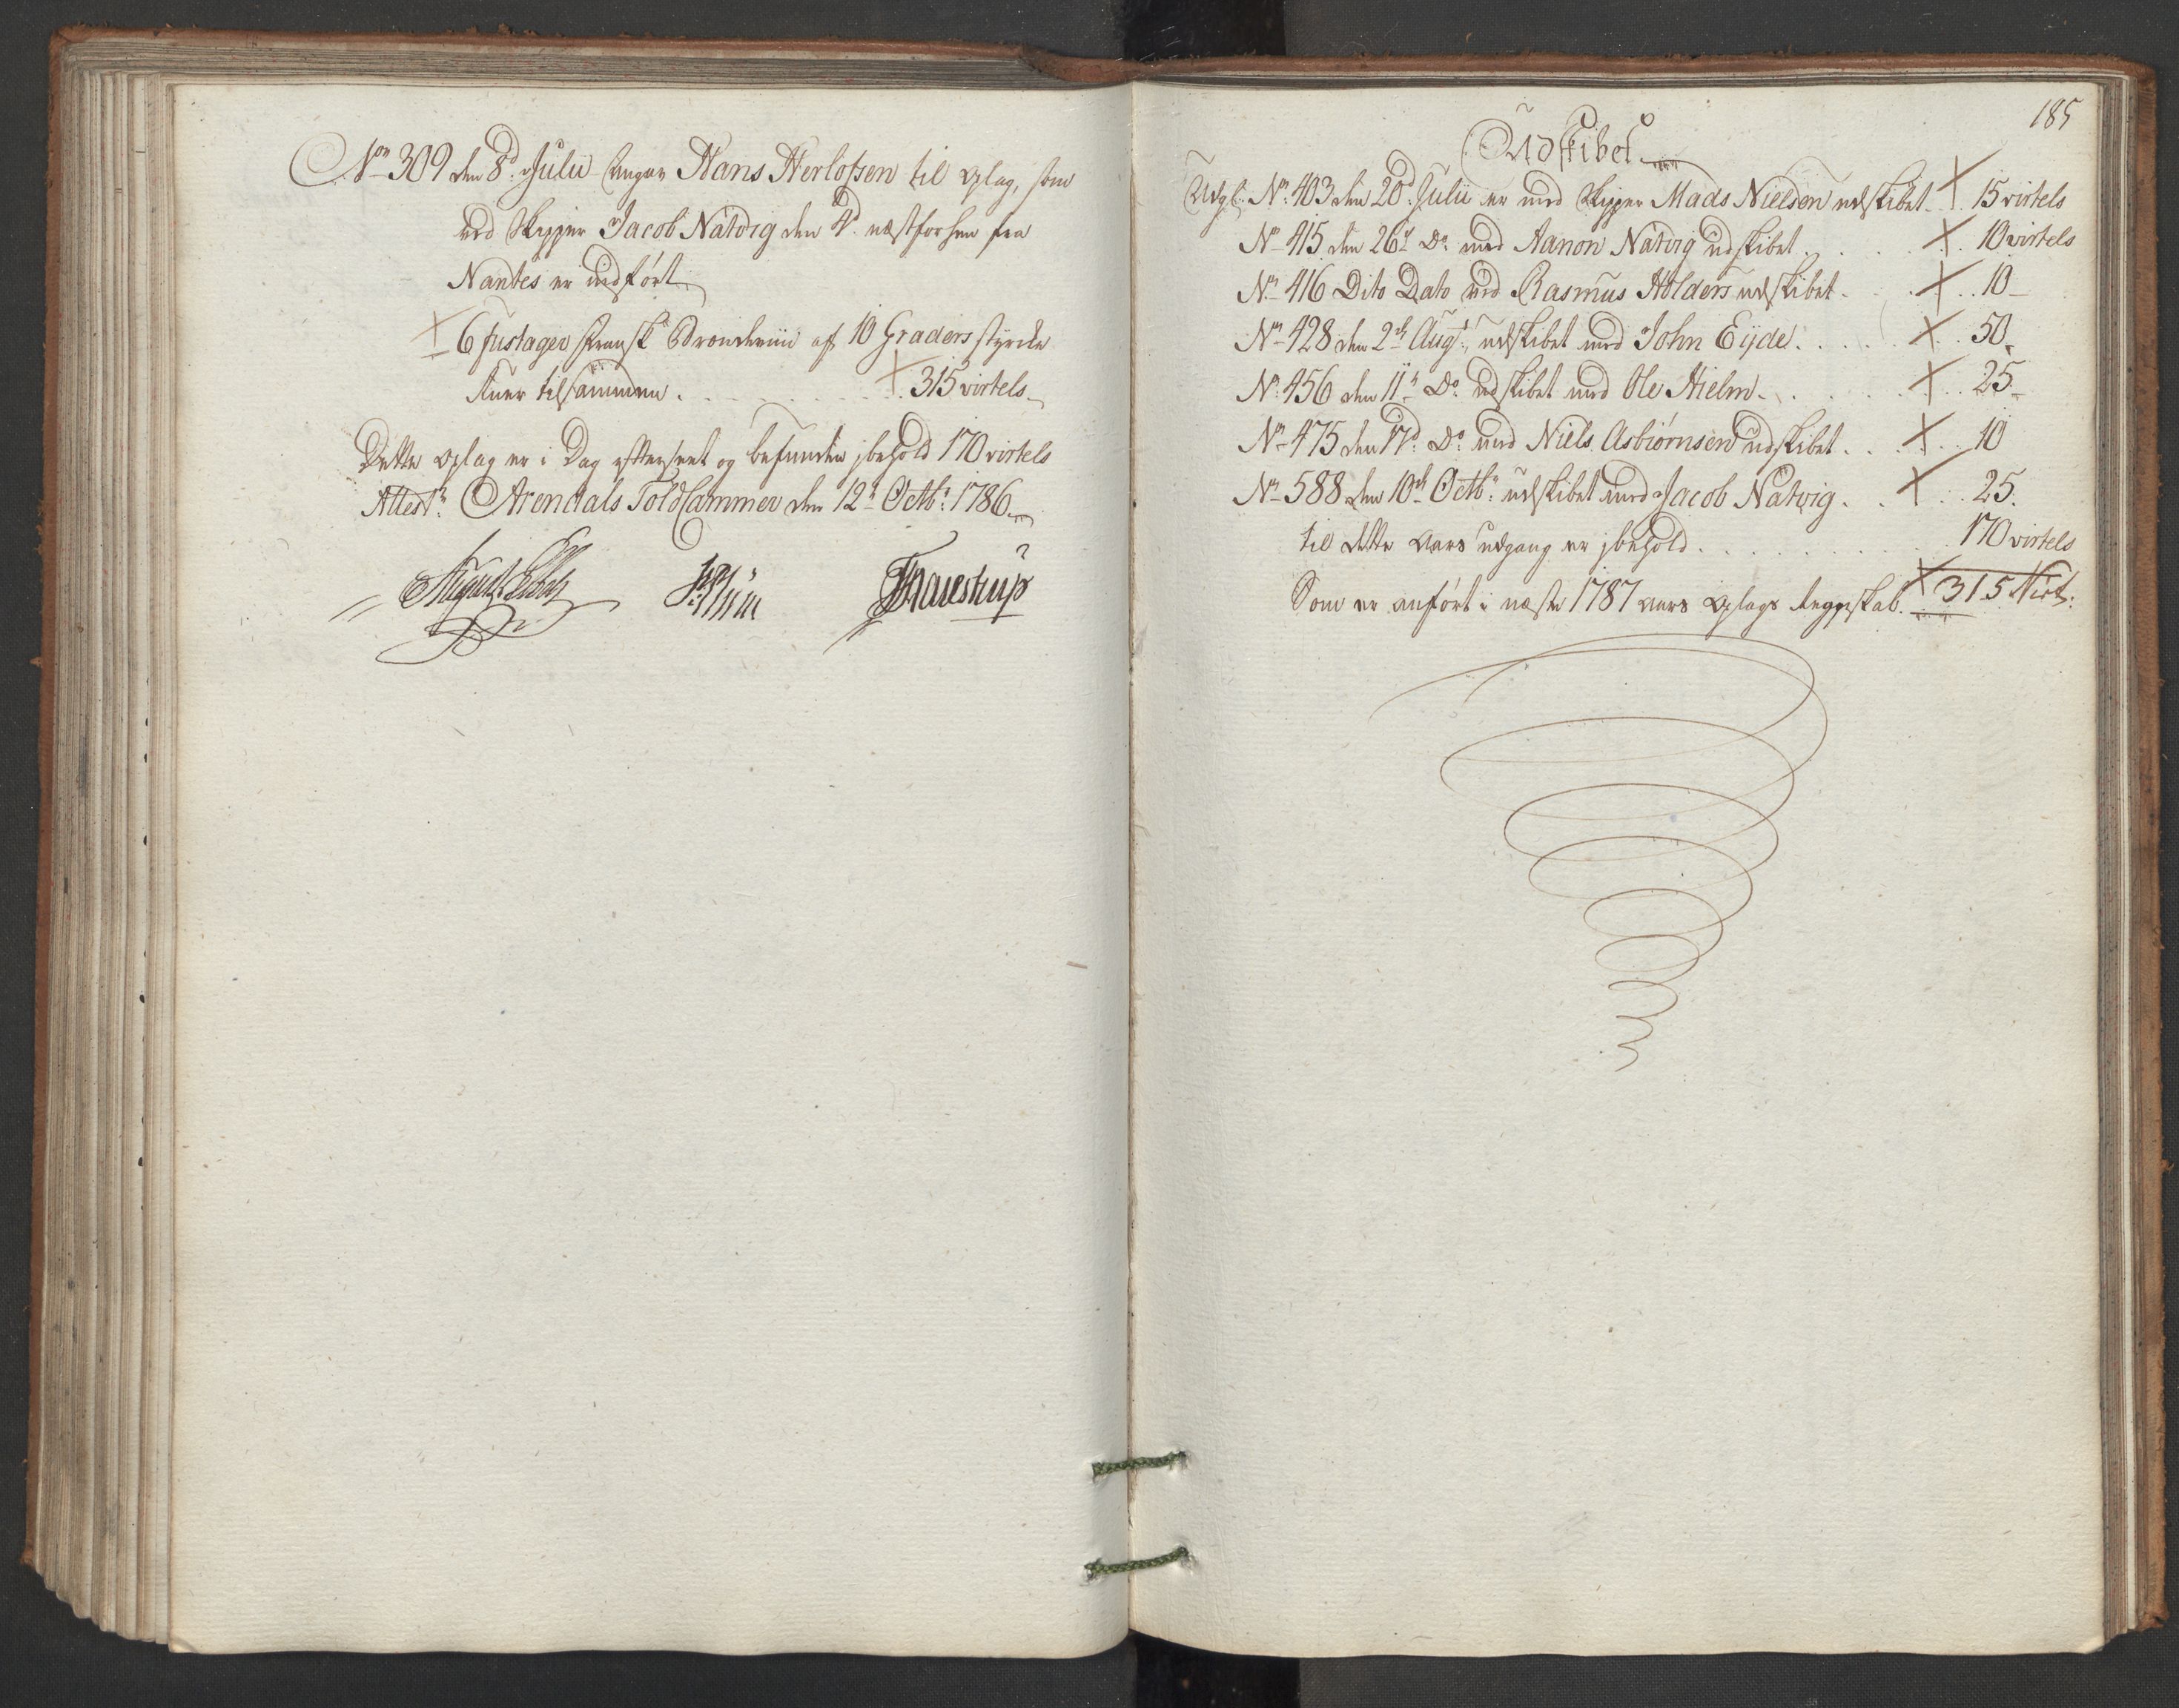 No 309 den 8d Julii Angav Hans Herlofsen til oplag, som
ved Skipper Jacob Natvig den 4d næstforhen fra
Nantes er indført
6 fustager fransk Brændeviin af 10 Graders styrcke
tilsammen . . . 315 virtels
Dette oplag er i Dag efterseet og befunden jbehold 170 virtels
Attest: Arendals ToldCammer den 12te Octbr: 1786.
185
Udskibet
Udgl: No 403 den 20d Julii er med Skipper Mads Nielsen udskibet 15 virtels
No 415 den 26t Do med Aanon Natvig udskibet . . . 10 virtels
No 416 Dito Dato ved Rasmus Holders udskibet . . . 10
No 428 den 2de Augt: udskibet med John Eyde . . . 50
No 456 den 11te Do udskibet med Ole Hielm . . . 25
No 475 den 17d Do med Niels Asbiørnsen udskibet . . . 10
No 588 den 10de Octbr: udskibet med Jacob Natvig . . . 25.
til dette aars udgang er jbehold . . . 170 virtels
Som er anført i næste 1787 aars oplags Regnskab. 315 Virt: